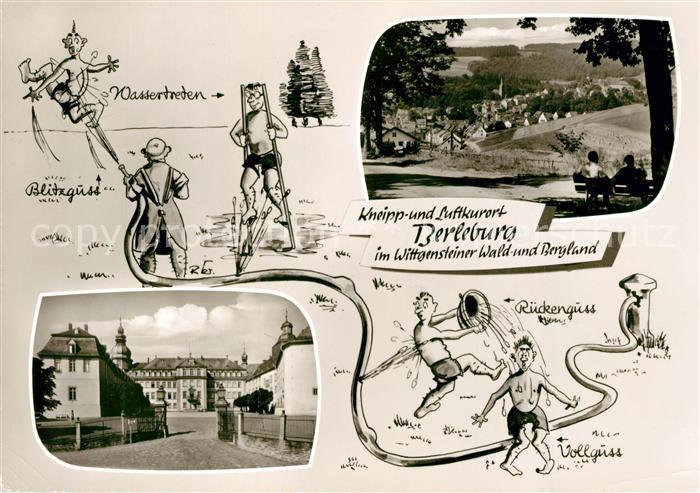 Wassertreten
Blitzguss
Kneipp-und Luftkurort
Berleburg
im Wittgensteiner Wald-und Bergland
Rückenguss
Vollguss